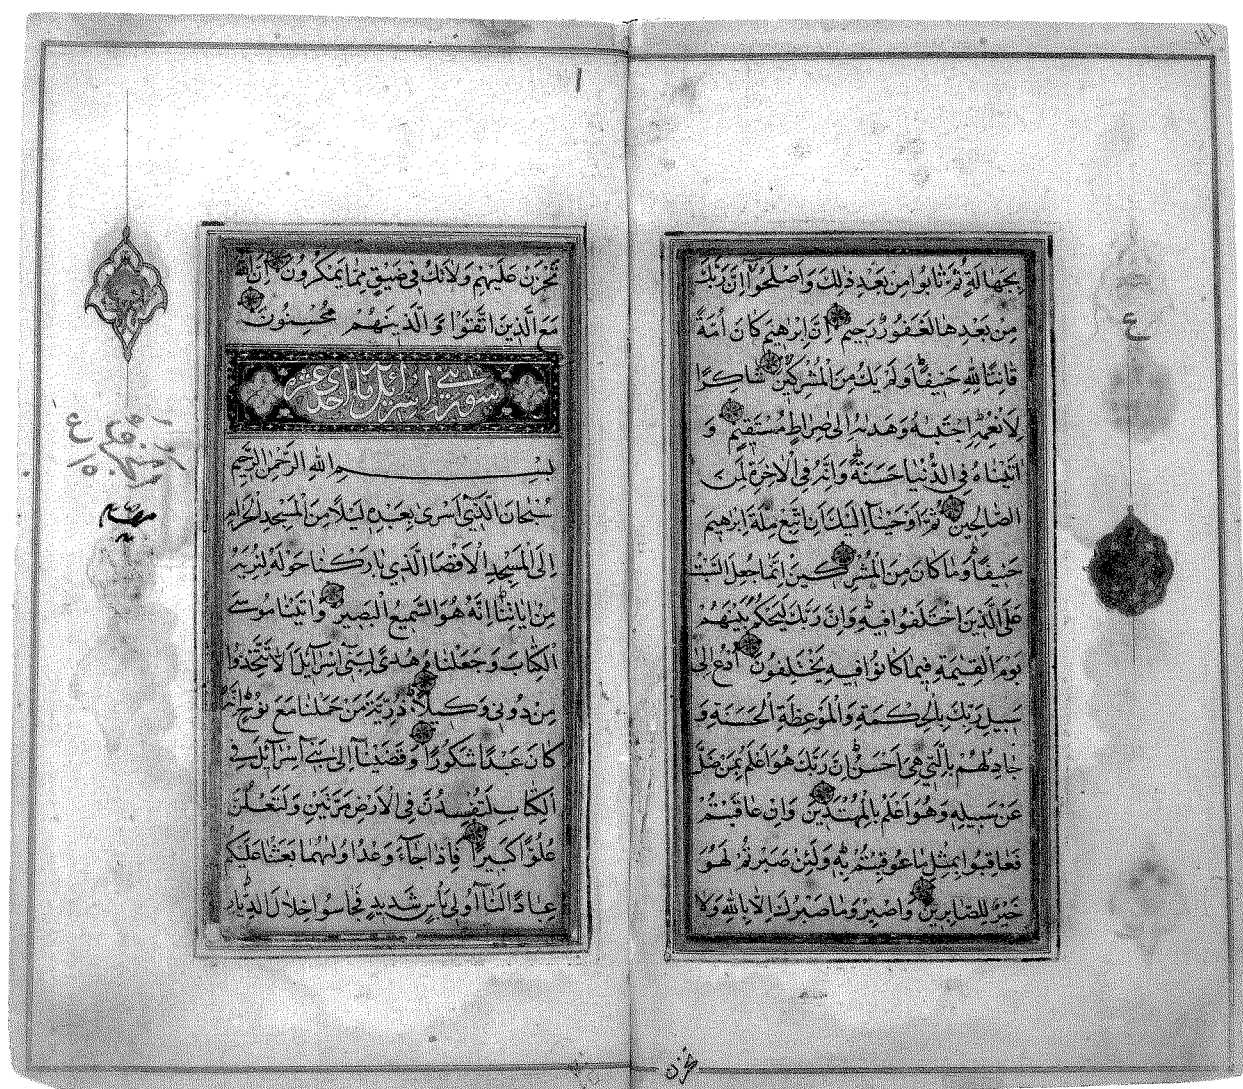 بجهالة ثم تابوا من بعد ذلك واصلحوا ان ربك
من بعدها لغفور رحيم ان ابرهيم كان امة
قانتا لله حنيفا ولم يك من المشركين شاكرا
لانعمه اجتبه وهديه الى صراط مستقيم و
اتيناه في الدنيا حسنة وانه في الاخرة لمن
الصالحين ثم اوحينا اليك ان اتبع ملة ابرهيم
حنيفا وما كان من المشركين انما جعل السبت
على الذين اختلفوا فيه وان ربك ليحكم بينهم
يوم القيمة فيما كانوا فيه يختلفون ادع الى
سبيل ربك بالحكمة والموعظة الحسنة و
جادلهم بالتي هي احسن ان ربك هو اعلم بمن ضل
عن سبيله وهو اعلم بالمهتدين وان عاقبتم
فعاقبوا بمثل ما عوقبتم به ولئن صبرتم لهو
خير للصابرين واصبر وما صبرك الا بالله ولا
تحزن
ع
تحزن عليهم ولا تك في ضيق مما يمكرون ان الله
مع الذين اتقوا والذينهم محسنون
سورة بني اسرائيل مائة احدى عشر
بسم الله الرحمن الرحيم
سبحان الذي اسرى بعبده ليلا من المسجد الحرام
الى المسجد الاقصا الذي باركنا حوله لنريه
من اياتنا انه هو السميع البصير واتينا موسى
الكتاب وجعلناه هدى لبني اسرائيل الا تتخذوا
من دوني وكيلا ذرية من حملنا مع نوح انه
كان عبدا شكورا وقضينا الى بني اسرائيل في
الكتاب لتفسدن في الارض مرتين ولتعلن
علوا كبيرا فاذا جاء وعد اوليهما بعثنا عليكم
عبادا لنا اولي بأس شديد فجاسوا خلال الديار